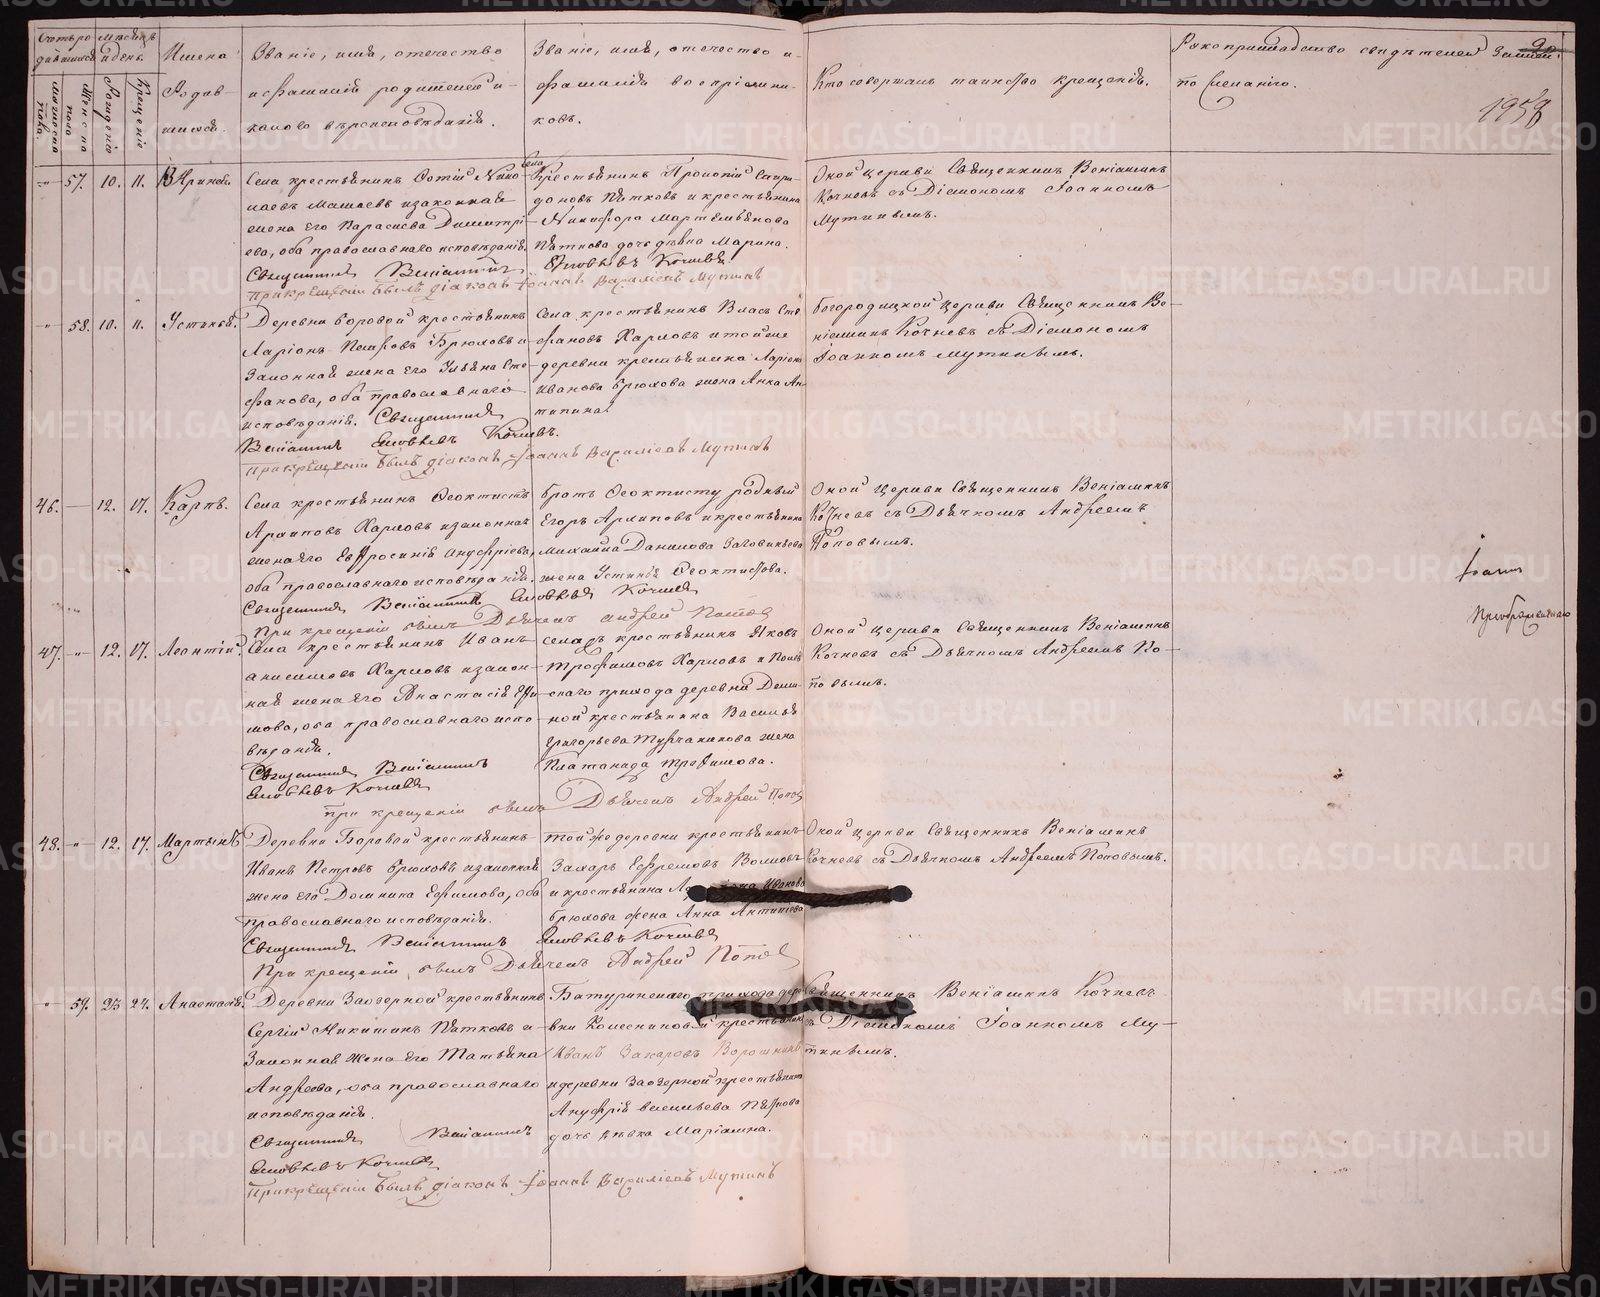 Имена
Родив-
шихся.
Званіе, имя, отчество
и фамилія родителей и
какого вѣроисповѣданія.
Званіе, имя, отчество и
фамилія воспріемни-
ковъ.
Кто совершалъ таинство крещенія.
Рукоприкладство свидѣтелей записи
по желанію.
57. 10. 11.
Села крестьянинъ Фотій Нико-
законная
жена его Параскева Димитрі-
ева, оба православнаго исповѣданія.
Священникъ Веніаминъ Яковлевъ Кочневъ
При крещеніи былъ діаконъ Іоаннъ Василіевъ Мутинъ
Крестьянинъ Прокопій Спири-
доновъ Пятковъ и крестьянина
Никифора Мартемьянова
Пяткова дочь дѣвка Марина.
Оной церкви Священникъ Веніаминъ
Кочневъ съ Діакономъ Іоанномъ
Мутинымъ.
58. 10. 11.
Деревни Боровой крестьянинъ
Ларіонъ Брюховъ и
Законная жена его Ульяна Сте-
фанова, оба православнаго
исповѣданія. Священникъ
Веніаминъ Яковлевъ Кочневъ.
При крещеніи былъ діаконъ Іоаннъ Василіевъ Мутинъ
Села крестьянинъ Власъ Сте-
фановъ Харловъ и той же
деревни крестьянина Ларіона
Иванова Брюхова жена Анна Ан-
типина.
Богородицкой церкви Священникъ Ве-
ніаминъ Кочневъ съ Діакономъ
Іоанномъ Мутинымъ.
46. — 12. 17. Карпъ.
Села крестьянинъ Феоктистъ
Архиповъ Харловъ и законная
жена его Евфросинія Ануфріева,
оба православнаго исповѣданія.
Священникъ Веніаминъ Яковлевъ Кочневъ
При крещеніи былъ Дьячекъ Андрей Поповъ
братъ Феоктисту родный
Егоръ Архиповъ и крестьянина
Михаила Данилова
жена Устинья Феоктистова.
Оной церкви Священникъ Веніаминъ
Кочневъ съ Дьячкомъ Андреемъ
Поповымъ.
47. 12. 17. Леонтій.
Села крестьянинъ Иванъ
Анисимовъ Харловъ и закон-
ная жена его Анастасія Ефи-
мова, оба православнаго испо-
вѣданія.
Священникъ Веніаминъ
Яковлевъ Кочневъ
При крещеніи былъ Дьячекъ Андрей Поповъ
села крестьянинъ Яковъ
Трофимовъ Харловъ и
скаго прихода деревни
ной крестьянина Василья
Григорьева жена
Трофимова.
Оной церкви Священникъ Веніаминъ
Кочневъ съ Дьячкомъ Андреемъ По-
повымъ.
48. 12. 17. Мартынъ.
Деревни Боровой крестьянинъ
Иванъ Петровъ Брюховъ и законная
жена его Домника Ефимова, оба
православнаго исповѣданія.
Священникъ Веніаминъ Яковлевъ Кочневъ
При крещеніи былъ Дьячекъ Андрей Поповъ
той же деревни крестьянинъ
Захаръ Ефремовъ Волковъ
и крестьянина Иванова
Брюхова жена Анна Антипева
Оной церкви Священникъ Веніаминъ
Кочневъ съ Дьячкомъ Андреемъ Поповымъ.
59. 23 24. Анастасія.
Деревни Заозерной крестьянинъ
Сергій Никитинъ Пятковъ и
Законная жена его Татьяна
Андреева, оба православнаго
исповѣданія.
Священникъ Веніаминъ
Яковлевъ Кочневъ
При крещеніи былъ діаконъ Іоаннъ Василіевъ Мутинъ
Батуринскаго прихода дере-
вни Колесниковой крестьянинъ
Иванъ Захаровъ Ворошнинъ
и деревни Заозерной крестьянина
Ануфрія Васильева Пяткова
дочь дѣвка Маріамна.
Священникъ Веніаминъ Кочневъ
съ Діакономъ Іоанномъ Му-
тинымъ.
METRIKI.GASO-URAL.RU